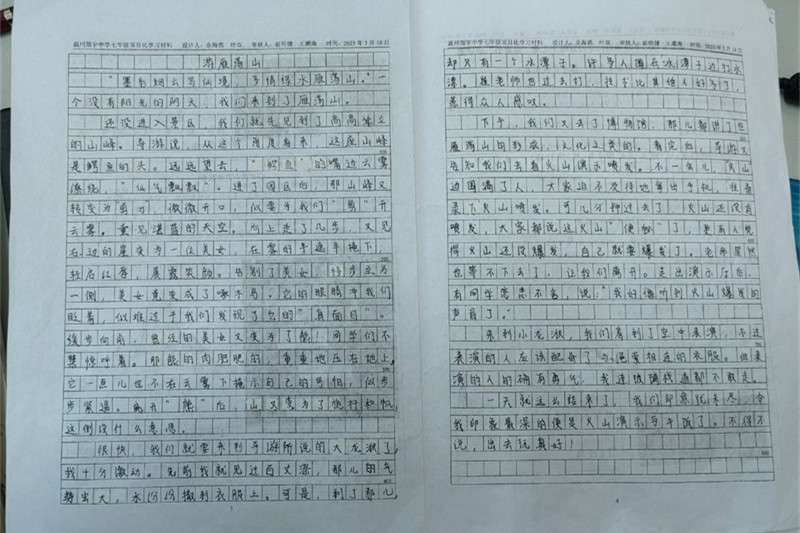 温州翔宇中学七年级项目化学习材料 设计人：余海燕 叶蓓 审核人：崔明健 王鹏海 时间：2023年3月18日
游雁荡山
“墨书烟云写仙境，多情绿水雁荡山。”一
个没有阳光的阴天，我们来到了雁荡山。
还没进入景区，我们就先见到了高高耸立
的山峰。导游说，从这个角度看来，这座山峰
是鳄鱼的头。远远望去，“鳄鱼”的嘴边云雾
缭绕，“仙气飘飘”。进了园区后，那山峰又
转变为剪刀，微微开口，似要为我们“剪”开
云雾。重见湛蓝的天空。向上走了几步，又见
右边的崖变为一位美女，在雾的半遮半掩下，
轻启红唇，展露笑颜。告别了美女，
一侧，美女竟变成了啄木鸟。它的眼睛中我们
眨着，似难过于我们发现了它的“真面目”。
缓步向前，曾经的美女又变为了熊！同学们不
禁惊呼着。那熊的肉肥肥的，重重地压在地上，
它一点儿也不在云雾下掩示自己的可怕，似步
步紧逼。离开“熊”后，山又变为了桅杆和帆，
这倒没什么意思。
很快，我们就要来到导游所说的大龙湫了，
我十分激动。先前我就见过百丈漈，那儿的气
势宏大，水纷纷撒到衣服上。可是，到了那儿
温州翔宇中学七年级项目化学习材料 设计人：余海燕 叶蓓 审核人：崔明健 王鹏海 时间：2023年3月18日
却只有一个水潭子。许多人围在水潭子边打水
漂。崔老师也过去打，技术比其他人好多了，
惹得众人感叹。
下午，我们又去了博物馆，那儿都讲了些
雁荡山的形成、文化之类的。看完后，导游又
告知我们去看火山演示喷发。不一会儿，“火山”
边围满了人，大家迫不及待地拿出手机，准备
录下火山喷发。可几分钟过去了，火山还没有
喷发，大家都说这火山“便秘”了，更有人觉
得火山还没爆发，自己就要爆发了。老师居然
也等不下去了，让我们离开。走出演示厅后，
有同学恋恋不舍，说：“我好像听到火山爆发的
声音了。”
来到小龙湫，我们看到了空中表演，不过
表演的人应该配备了与温变相近的衣服。但表
演的人的确有勇气，我连玻璃栈道都不敢走。
一天就这么结束了，我们却意犹未尽，令
我印象最深的便是火山演示与午饭了。不得不
说，出去玩真好！